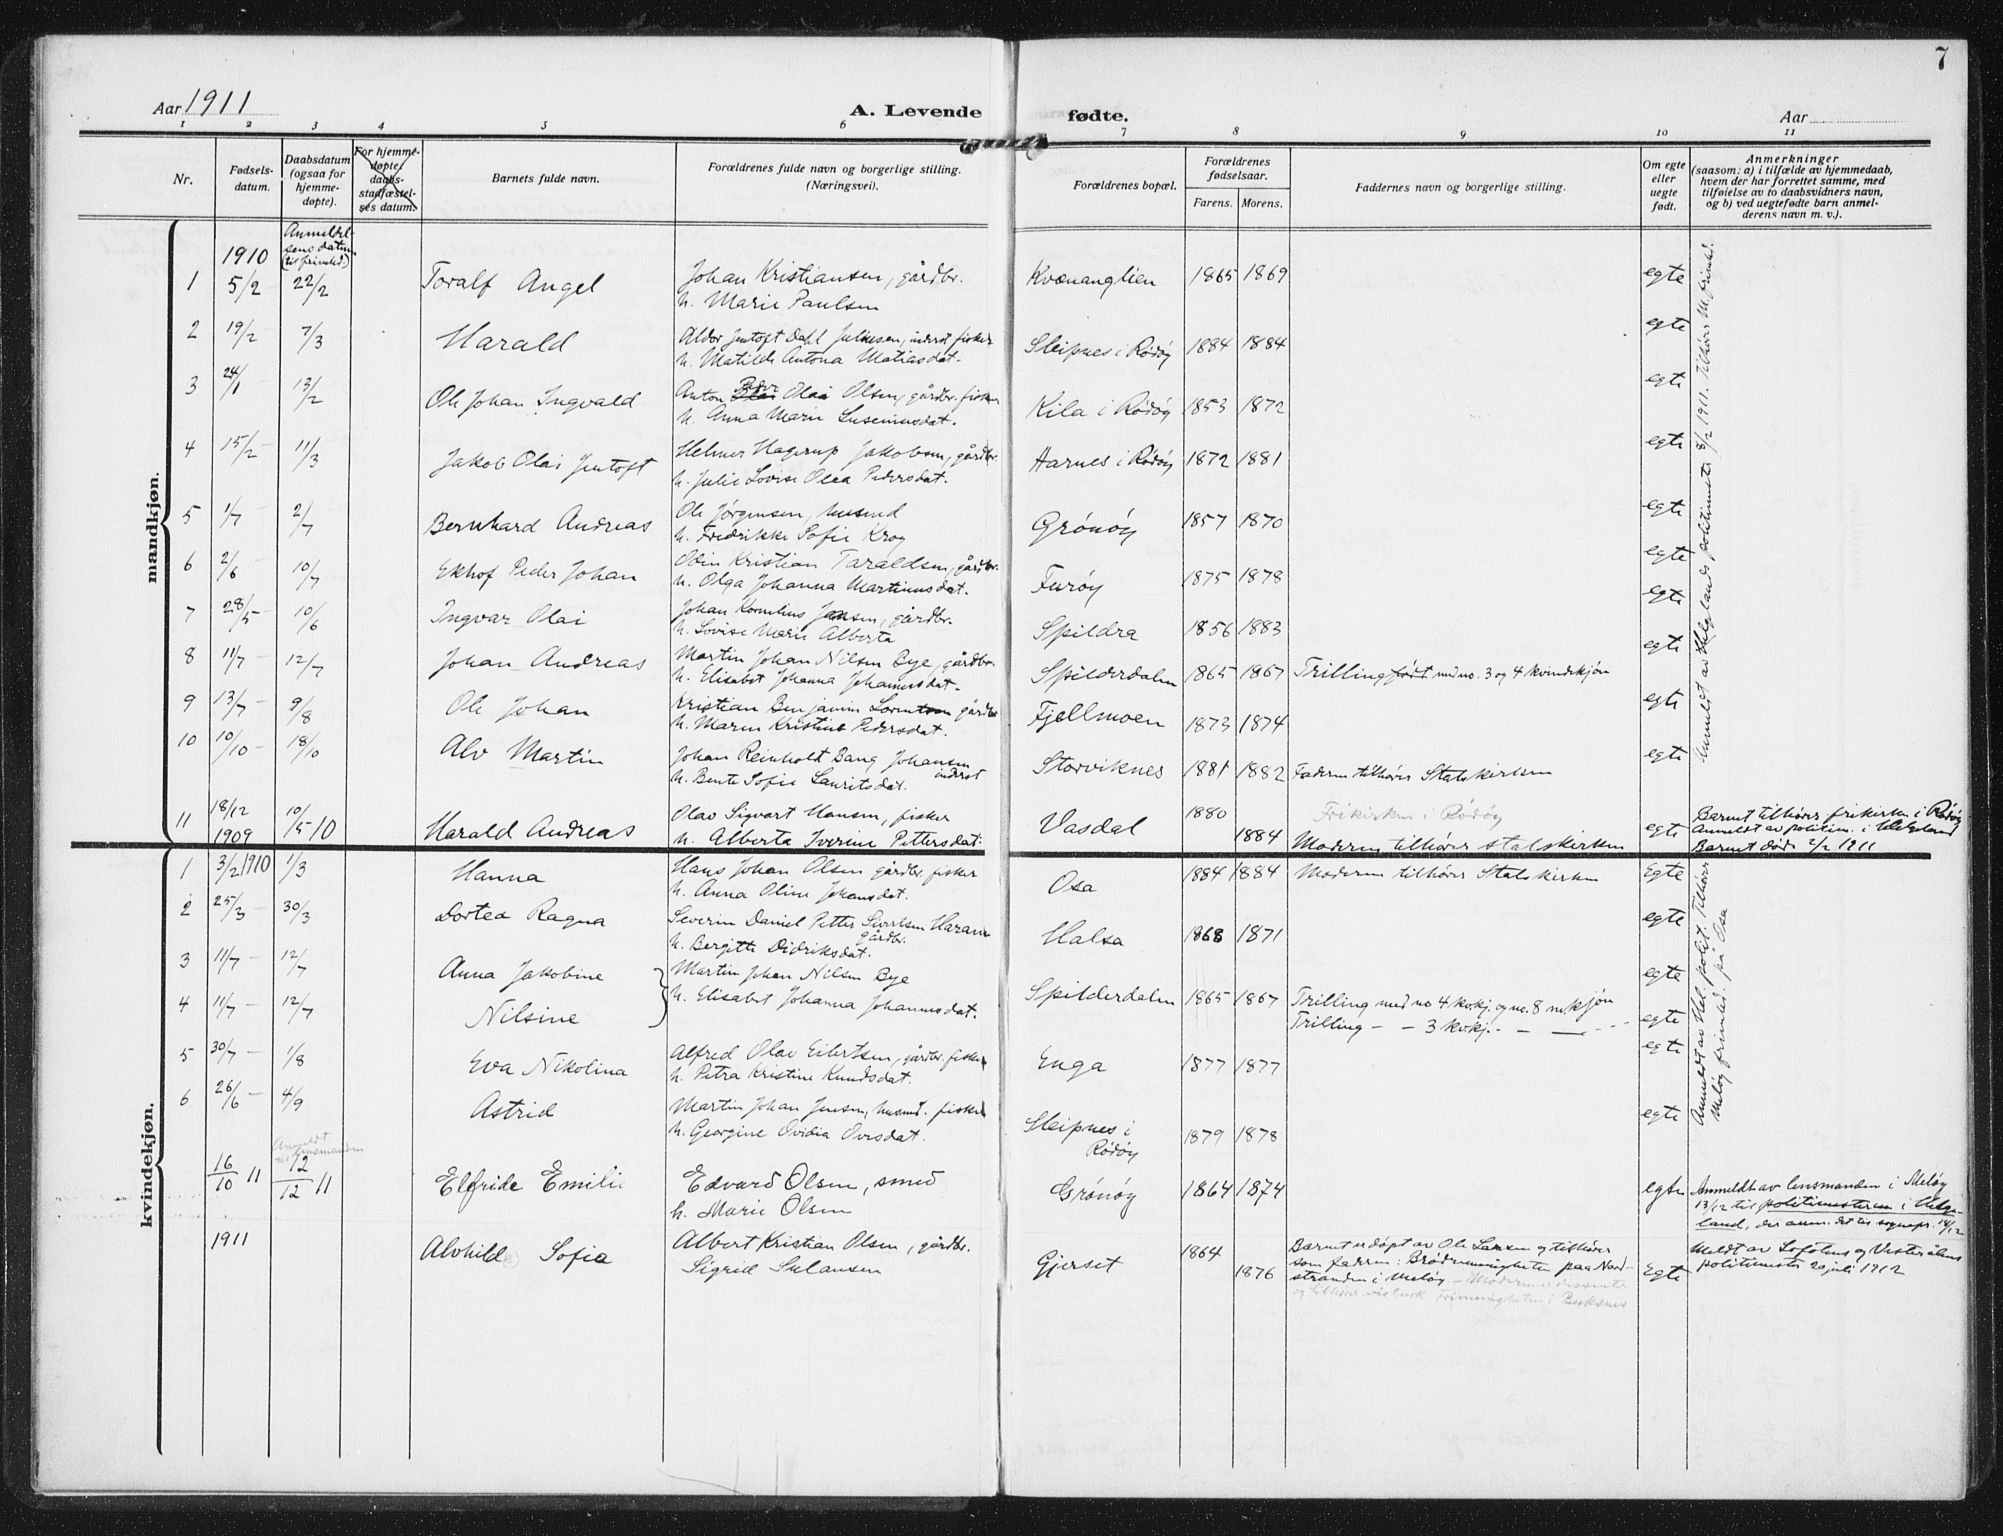 7
Aar 1911
A. Levende fødte.
Aar
1 2 3 4 5 6 7 8 9 10 11
Nr.
Fødsels-datum.
Daabsdatum (ogsaa for hjemme-døpte).
For hjemme-døpte: daabs-stadfæstel-ses datum.
Barnets fulde navn.
Forældrenes fulde navn og borgerlige stilling. (Næringsvei).
Forældrenes bopæl.
Forældrenes fødselsaar.
Farens. Morens.
Faddernes navn og borgerlige stilling.
Om egte eller uegte født.
Anmerkninger
(saasom: a) i tilfælde av hjemmedaab,
hvem der har forrettet samme, med
tilføielse av to daabsvidners navn,
og b) ved uegtefødte barn anmel-
derens navn m. v.).
mandkjøn.
1910
Anmeldelsens datum
1 5/2 22/2 Toralf Angel Johan Kristiansen, gårdbr. Kvænanglien 1865 1869 egte
h. Marie Paulsen
2 19/2 7/3 Harald Aldor Jentoft Dahl Juliusen, inderst fisker Sleipnes i Rødøy 1884 1884 egte
h. Matilde Antona Matiasdat.
3 24/1 13/2 Ole Johan Ingvald Anton Peder Olai Olsen, gårdbr. fisker Kila i Rødøy 1853 1872 egte
h. Anna Marie
4 15/2 11/3 Jakob Olai Jentoft Helmer Hagerup Jakobsen, gårdbr. Harnes i Rødøy 1872 1881 egte
h. Julie Lovise Olea Pedersdat.
5 1/7 2/7 Bernhard Andreas Ole Jørgensen, husmd Grönöy 1857 1870 egte
h. Fredrikke Sofie Krog
6 2/6 10/7 Ekhof Peder Johan Odin Kristian Taraldsen, gårdbr. Furöy 1875 1878 egte
h. Olga Johanna Martinusdat.
7 28/5 10/6 Ingvar Olai Johan Kornelius Jensen, gårdbr. Spildra 1856 1883 egte
h. Lovise Marie Alberta
8 11/7 12/7 Johan Andreas Martin Johan Nilsen Bye, gårdbr. Spilderdalen 1865 1867 Trilling født med no. 3 og 4 kvindekjøn egte
h. Elisabet Johanna Johannesdat.
9 13/7 9/8 Ole Johan Kristian Benjamin Lorentsen gårdbr Fjellmoen 1873 1874 egte
h. Maren Kristine Pedersdat.
10 10/10 18/10 Alv Martin Johan Reinholdt Bang Johansen inderst Storviknes 1881 1882 Faderen tilhører Statskirken egte
h. Bente Sofie Lauritsdat.
11 18/12 1909 10/5 10 Harald Andreas Olav Sigvart Hansen, fisker Vasdal 1880 1884 Frikirken i Rødøy egte
h. Alberta Iverine Pettersdat. Moderen tilhører statskirken
Barnet tilhører frikirken i Rødøy
Anmeldt av politim. i Helgeland
Barnet død 2/2 1911
Anmeldt av Helgelands politimester 8/2 1911. Tilhører M. frimh.
kvindekjøn.
1 3/2 1910 1/3 Hanna Hans Johan Olsen gårdbr. fisker Osa 1884 1884 Moderen tilhører Statskirken Egte
h. Anna Oline Johansdat.
2 25/3 30/3 Dortea Ragna Severin Daniel Petter Sivertsen gårdbr. Halsa 1868 1871 egte
h. Bergitte Didriksdat.
3 11/7 12/7 Anna Jakobine Martin Johan Nilsen Bye Spilderdalen 1865 1867 Trilling med no 4 kvkj. og no. 8 m.kjøn egte
4 11/7 12/7 Nilsine h. Elisabet Johanna Johannesdat. Trilling - - 3 kvkj. - - - egte
5 30/7 1/8 Eva Nikolina Alfred Olav Eilertsen, gårdbr. fisker Enga 1877 1877 egte
h. Petra Kristine Knudsdat.
6 26/6 4/9 Astrid Martin Johan Jensen, husmd. fisker Sleipnes i Rødøy 1879 1878 egte
h. Georgine Ovidia Ovesdat.
Anmeldt av Hel. polit. Tilhører
Meløy frimed. på Osa
Anmeldt til lensmanden
16/10 11 12/12 11 Elfride Emilie Edvard Olsen, smed Grönöy 1864 1874 egte
h. Marie Olsen
Anmeldt av lensmanden i Meløy
13/12 til politimesteren i Helge-
land, der anm. det til sognepr. 14/12
1911 Alvhild Sofia Albert Kristian Olsen, gårdbr. Gjerset 1864 1876 Egte
Sigrid
Barnet er døpt av Ole Larsen og tilhører
som faderen: Brødremenigheten paa Nord-
stranden i Meløy. - Moderen er dissenter
og tilhører Frimenigheten i Buksnes
Meldt av Lofotens og Vesterålens
politimester 20 juli 1912